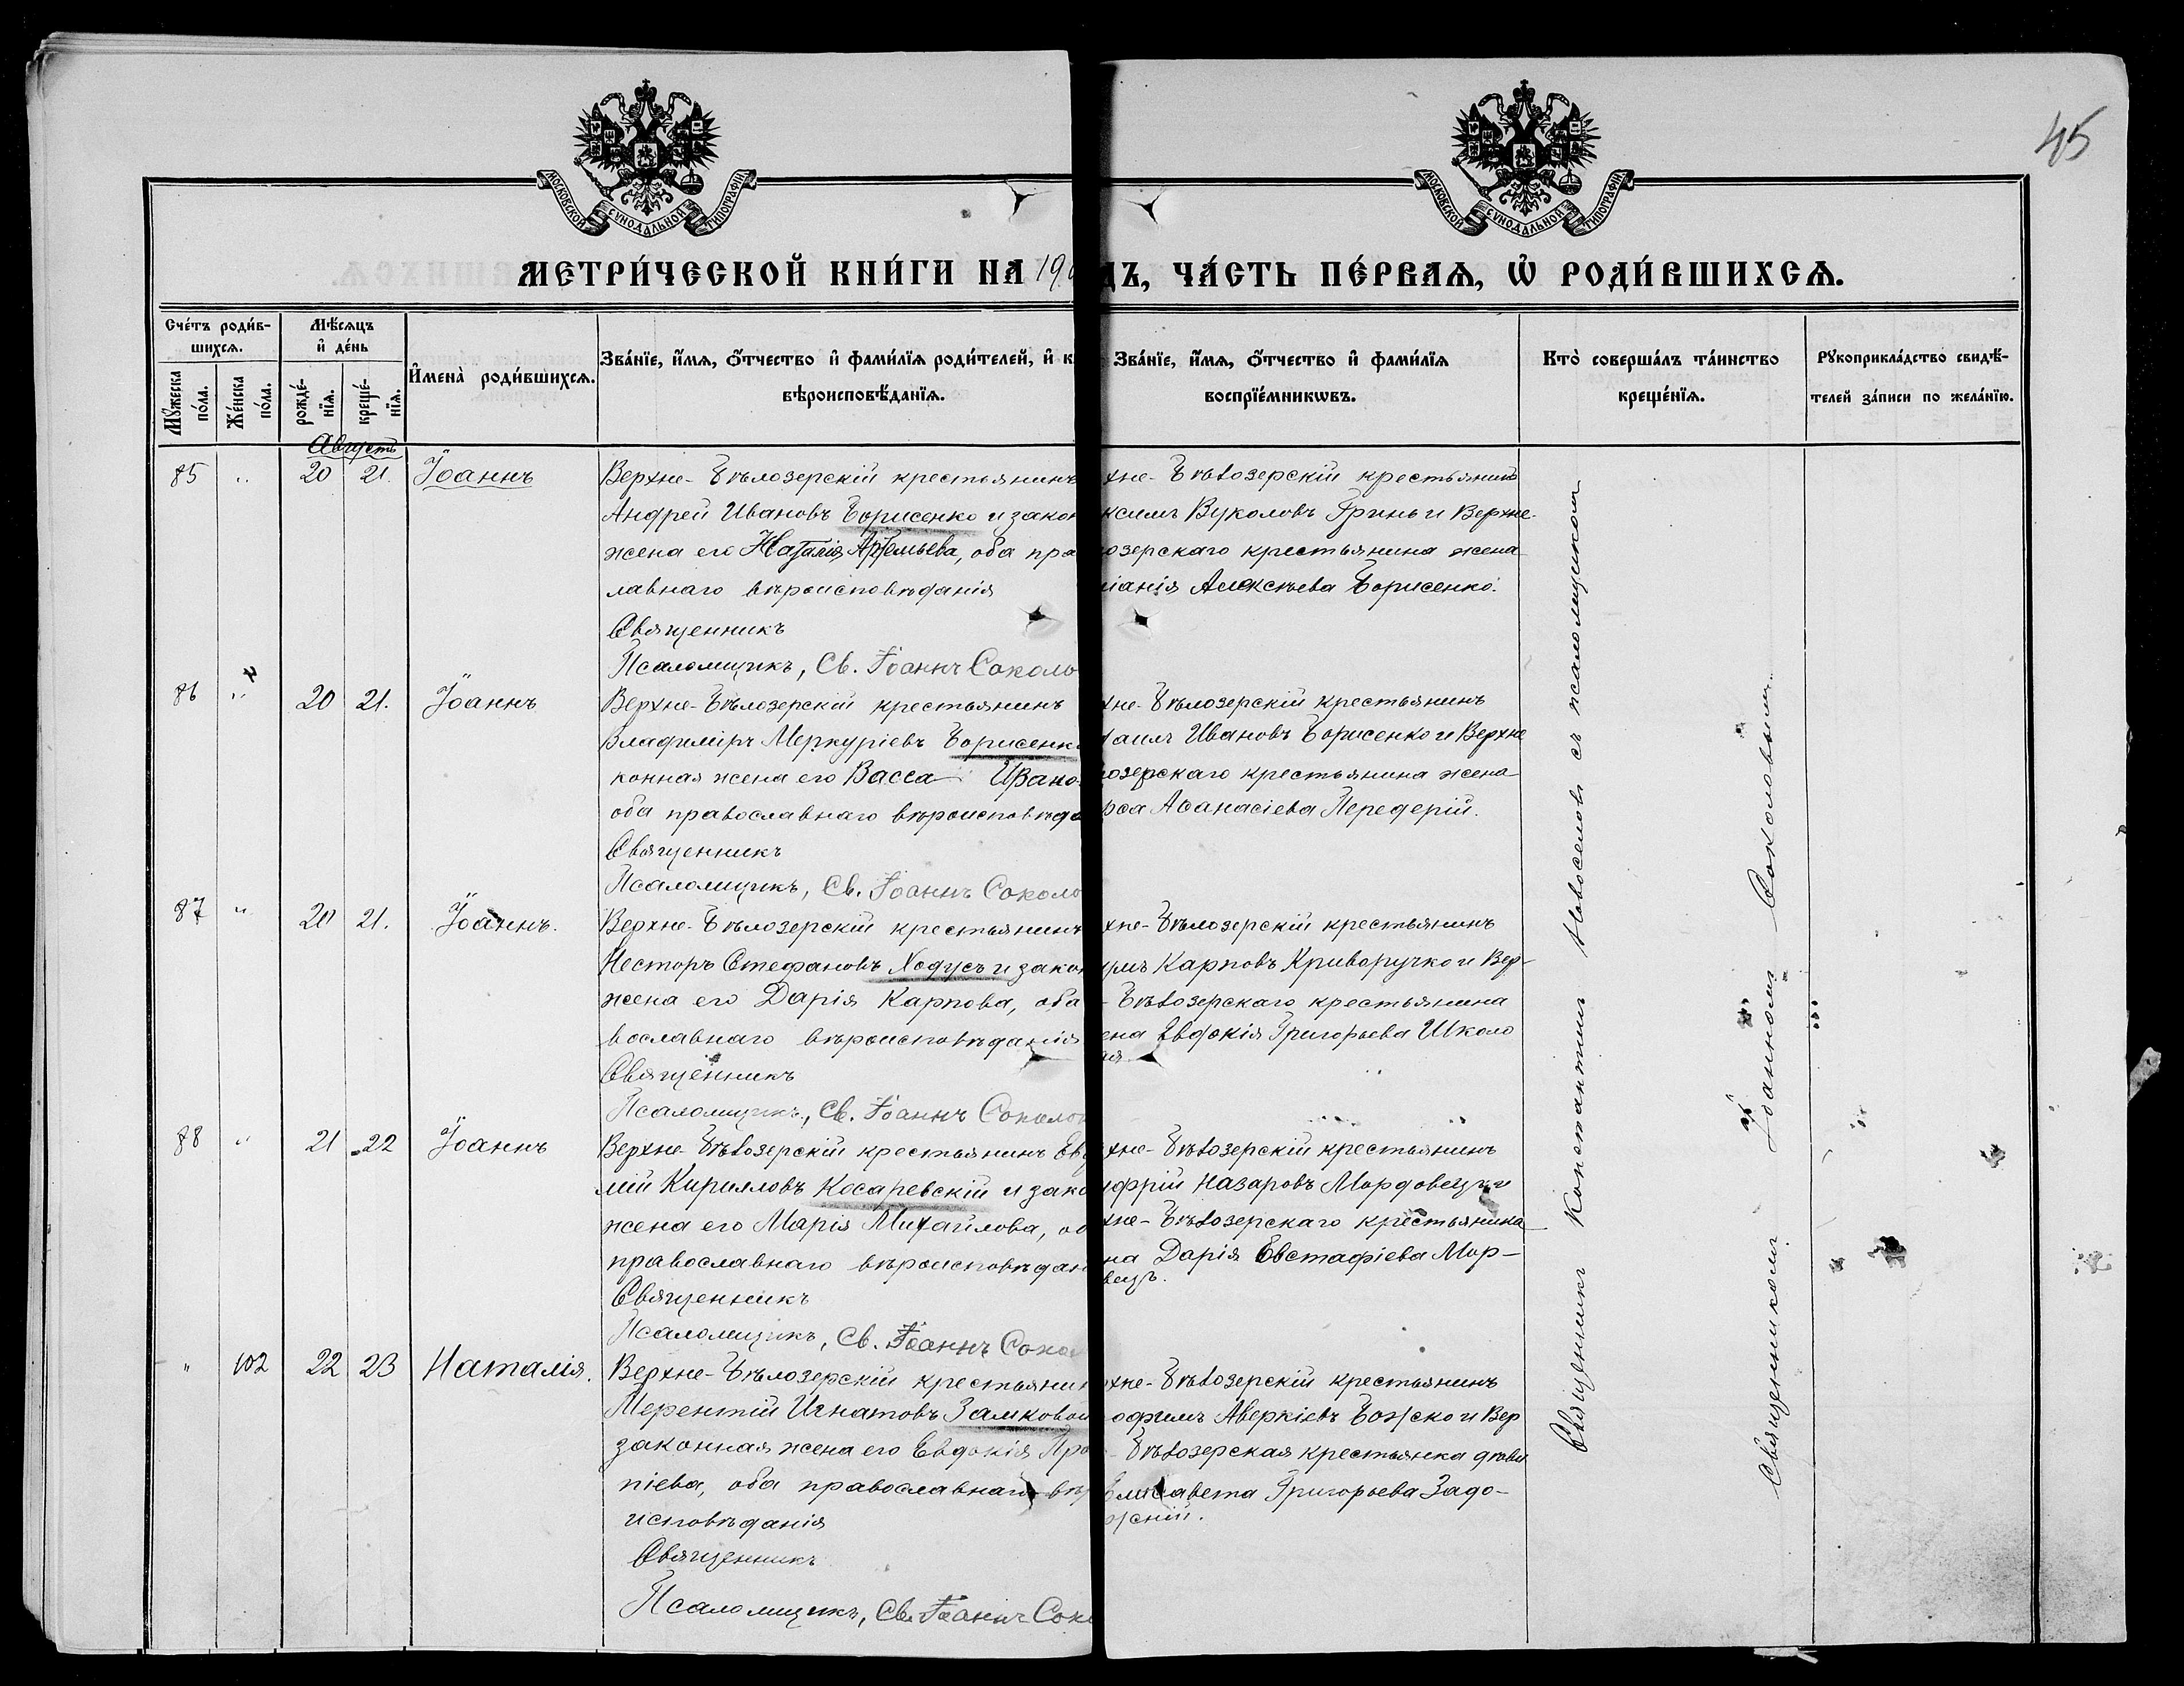 45
МОСКОВСКОЙ СѴНОДАЛЬНОЙ ТИПОГРАФІИ
МОСКОВСКОЙ СѴНОДАЛЬНОЙ ТИПОГРАФІИ
МЕТРИ́ЧЕСКОЙ КНИ́ГИ НА 19
ДЪ, ЧА́СТЬ ПЕ́РВАѦ, Ѡ҆ РОДИ́ВШИХСѦ.
Сче́тъ роди́в-
шихсѧ.
Мꙋ́жеска по́ла.
Же́нска по́ла.
Мѣ́сѧцъ
и҆ де́нь
рожде́-
нїѧ.
креще́-
нїѧ.
И҆мена̀ роди́вшихсѧ.
Зва́нїе, и҆́мѧ, ѻ҆́тчество и҆ фами́лїѧ роди́телей, и҆ к
вѣроисповѣ́данїѧ.
Зва́нїе, и҆́мѧ, ѻ҆́тчество и҆ фами́лїѧ
воспрїе́мникѡвъ.
Кто̀ соверша́лъ та́инство
креще́нїѧ.
Рꙋкоприкла́дство свидѣ́-
телей за́писи по жела́нїю.
Августъ
85 " 20 21. Іоаннъ
Верхне-Бѣлозерскій крестьянинъ
Андрей Ивановъ Борисенко и закон
жена его Наталія Артемьева, оба пра
лавнаго вѣроисповѣданія
Священникъ
Псаломщикъ, Св. Іоаннъ Соколо
хне-Бѣлозерскій крестьянинъ
ксимъ Вуколовъ Гринь и Верхне-
озерскаго крестьянина жена
іанія Алексѣева Борисенко.
86 " 20 21. Іоаннъ
Верхне-Бѣлозерскій крестьянинъ
Владиміръ Меркуріевъ Борисенко
конная жена его Васса Ивано
оба православнаго вѣроисповѣда
Священникъ
Псаломщикъ, Св. Іоаннъ Соколо
хне-Бѣлозерскій крестьянинъ
хаилъ Ивановъ Борисенко и Верхне
озерскаго крестьянина жена
рса Аѳанасіева Передерій.
87 " 20 21. Іоаннъ.
Верхне-Бѣлозерскій крестьянинъ
Несторъ Стефановъ Ходусъ и закон
жена его Дарія Карпова, оба
вославнаго вѣроисповѣданія
Священникъ
Псаломщикъ, Св. Іоаннъ Соколов
хне-Бѣлозерскій крестьянинъ
умъ Карповъ Криворучко и Вер-
- Бѣлозерскаго крестьянина
ена Евдокія Григорьева Школо
ая
88 " 21 22 Іоаннъ
Верхне-Бѣлозерскій крестьянинъ Евф
мій Кирилловъ Косаревскій и зако
жена его Марія Михайлова, об
православнаго вѣроисповѣдан
Священникъ
Псаломщикъ, Св. Іоаннъ Соко
хне-Бѣлозерскій крестьянинъ
уфрій Назаровъ Мордовецъ и
хне-Бѣлозерскаго крестьянина
на Дарія Евстафіева Мор-
вецъ.
" 102 22 23 Наталія.
Верхне-Бѣлозерскій крестьянин
Терентій Игнатовъ Замковой
законная жена его Евдокія Про
піева, оба православнаго вѣр
исповѣданія
Священникъ
Псаломщикъ, Св. Іоаннъ Соко
хне-Бѣлозерскій крестьянинъ
офимъ Аверкіевъ Божко и Вер
- Бѣлозерская крестьянка дѣви
Елисавета Григорьева Задо-
жній.
Священникъ Константинъ Новоселовъ съ псаломщикомъ
Священникомъ Іоанномъ Соколовымъ.